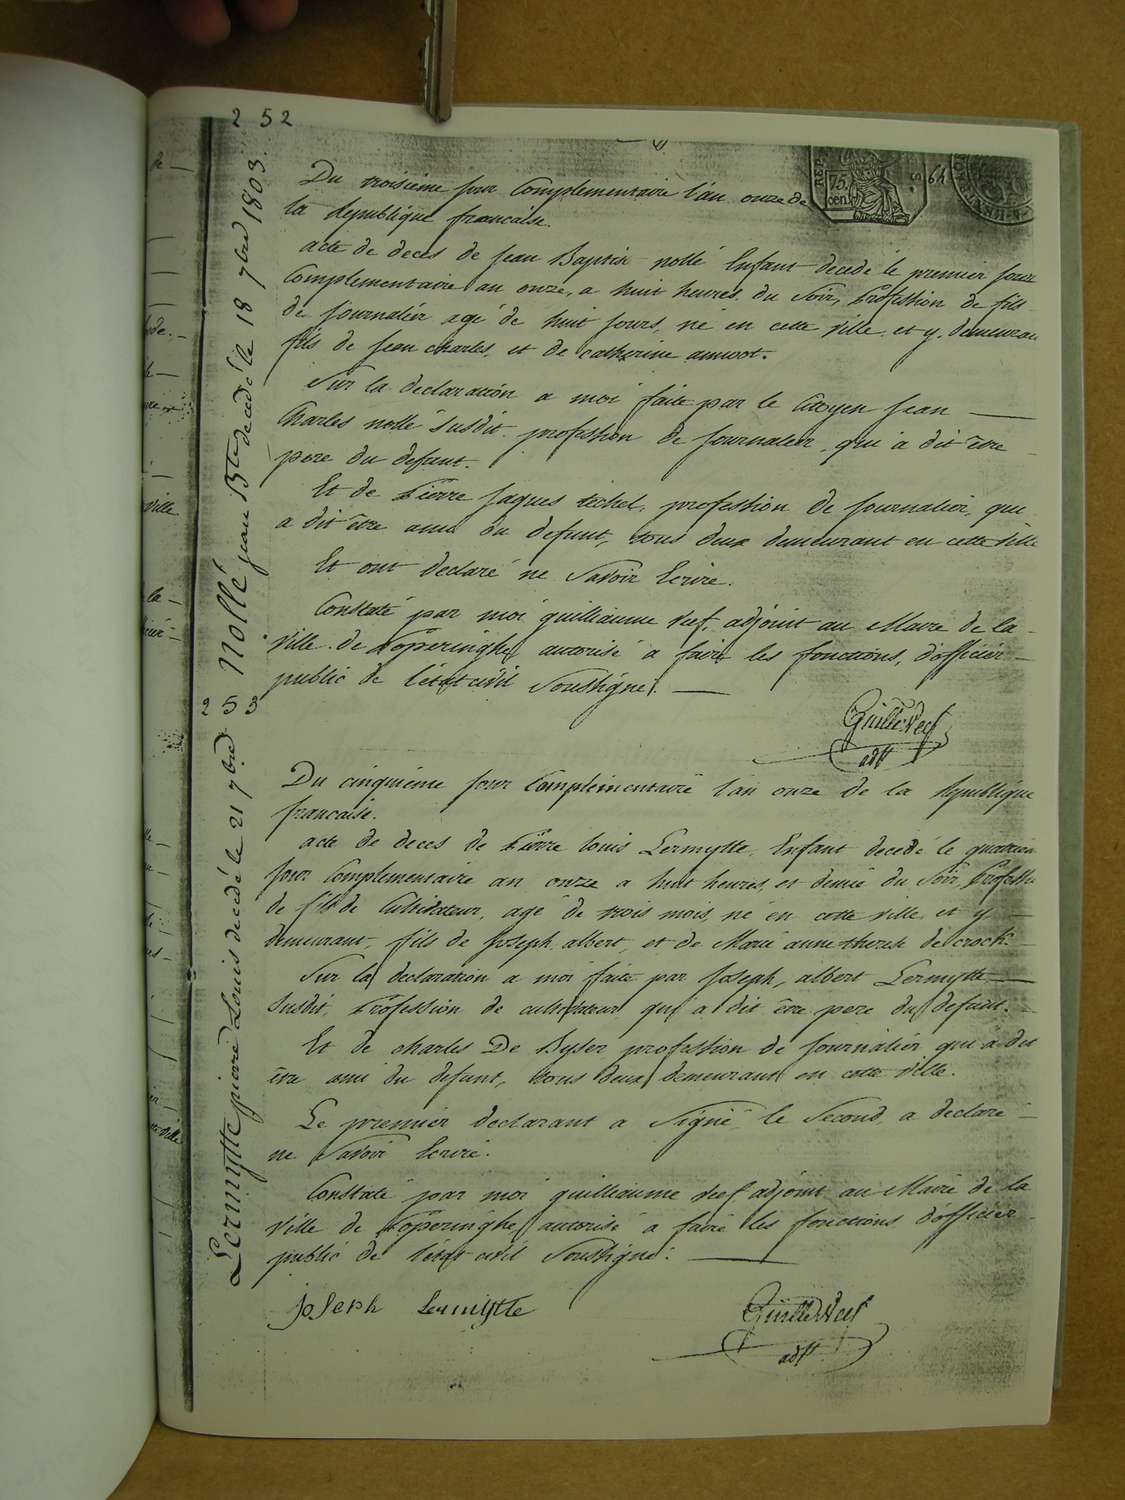 2 52
Nollé jean Bte decedé le 18 7bre 1803.
REP.
75.
cen.
S. 64
Du troisieme jour Complementaire l'an onze de
la Republique francaise.
acte de deces de Jean Baptiste nollé Enfant decedé le premier jour
Complementaire an onze, a huit heures du Soir, Profession de fils
de journalier agé de huit jours, né en cette ville et y demeurant
fils de Jean charles, et de catherine
Sur la declaration a moi faite par le Citoyen Jean
Charles nollé Susdit profession de Journalier, qui a dit être
pere du defunt.
Et de Pierre Jaques profession de Journalier, qui
a dit être ami du defunt, tous deux demeurant en cette ville
Et ont declaré ne Savoir Ecrire.
Constaté par moi guilliaume Vief, adjoint au Maire de la
ville de Poperinghe autorisé a faire les fonctions, d'officier
public de l'etat civil Soussigné.
Guille Vief
adjt
2 5 3
Lermytte pierre Louis decedé le 21 7bre
Du cinquieme jour Complementaire l'an onze de la Republique
francaise.
acte de deces de Pierre louis Lermytte Enfant decedé le quatrieme
jour Complementaire an onze a huit heures et demie du Soir, Professi
de fils de Cultivateur, agé de trois mois, né en cette ville et y
demeurant, fils de Joseph albert, et de Marie anne therese decrock
Sur la declaration a moi faite par Joseph, albert Lermytte
Susdit, Profession de cultivateur qui a dit être pere du defunt.
Et de charles De Byser profession de journalier qui a dit
être ami du defunt, tous deux demeurant en cette ville.
Le premier declarant a Signé le Second a declaré
ne Savoir Ecrire.
Constaté par moi guilliaume Vief adjoint au Maire de la
Ville de Poperinghe autorisé a faire les fonctions d'officier
public de l'etat civil Soussigné.
Joseph Lermytte
Guille Vief
adjt